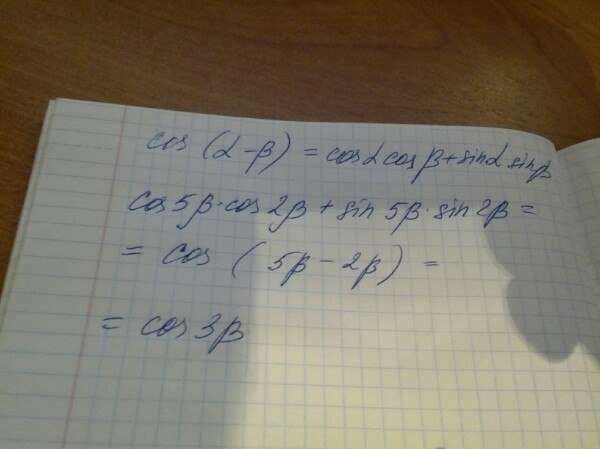 cos (α-β) = cosα cosβ + sinα sinβ
cos5β·cos2β + sin5β·sin2β =
= cos (5β - 2β) =
= cos3β